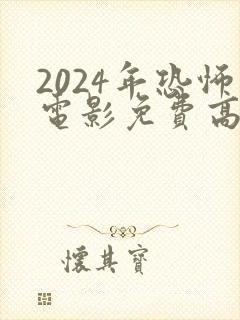 2024年恐怖
电影免費高
懷其寶